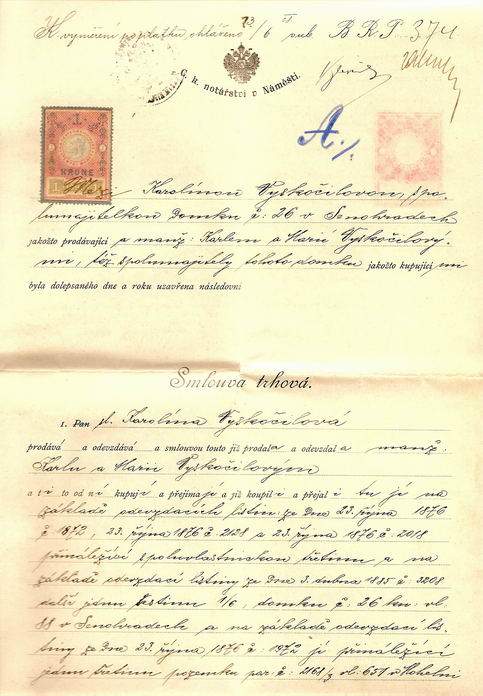 K vyměření poplatku ohlášeno 73/6 sub B.R.P. 374
C. k. notářství v Náměšti.
A./
KRONE
1
Mezi Karolinou Vyskočilovou, spo-
lumajitelkou domku č: 26 v Senohradech
jakožto prodávající a manž: Karlem a Marií Vyskočilový-
mi, též spolumajitely tohoto domku jakožto kupujícími
byla dolepsaného dne a roku uzavřena následovní
Smlouva trhová.
1. Paní Karolína Vyskočilová
prodává a odevzdává a smlouvou touto již prodala a odevzdala manž.
Karlu a Marii Vyskočilovým
a ti to od ní kupují a přejímají a již koupili a přejali tu jí na
základě odevzdacích listin ze dne 23. října 1876
č 1972, 23. října 1876 č: 2128 a 23. října 1876 č: 2018
přináležící spoluvlastnickou třetinu, a na
základě odevzdací listiny ze dne 3. dubna 1885 č: 3208
další jednu šestinu 1/6, domku č: 26 kn: vl.
88 v Senohradech a na základě odevzdací lis-
tiny ze dne 23. října 1876 č: 1972 jí přináležící
jednu třetinu pozemku par: č: 2168/3 vl: 651